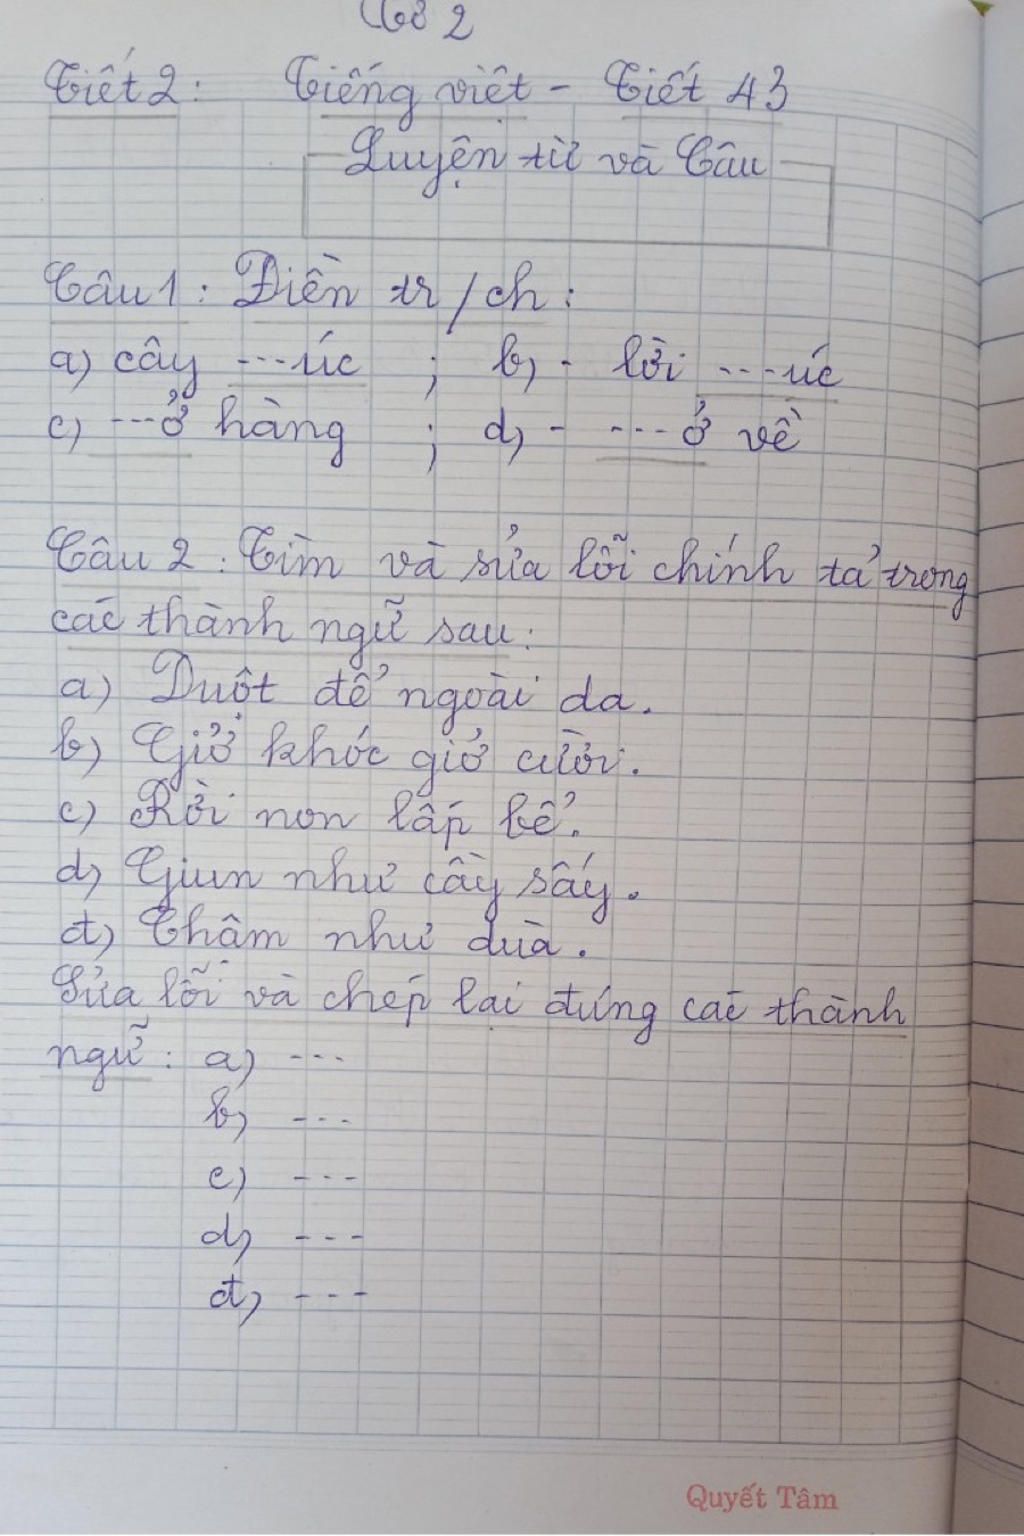 2
Tiết 2: Tiếng việt - Tiết 43
Luyện từ và Câu
Câu 1: Điền tr/ch:
a) cây ---úc ; b) - lời ---úc
c) ---ở hàng ; d) - ---ở về
Câu 2: Tìm và sửa lỗi chính tả trong
các thành ngữ sau:
a) Duột để ngoài da.
b) Giở khóc giở cười.
c) Rời non lấp bể.
d) Giun như cầy sấy.
đ) Thâm như dùa.
Sửa lỗi và chép lại đúng các thành
ngữ: a) ---
b) ---
c) ---
d) ---
đ) ---
Quyết Tâm